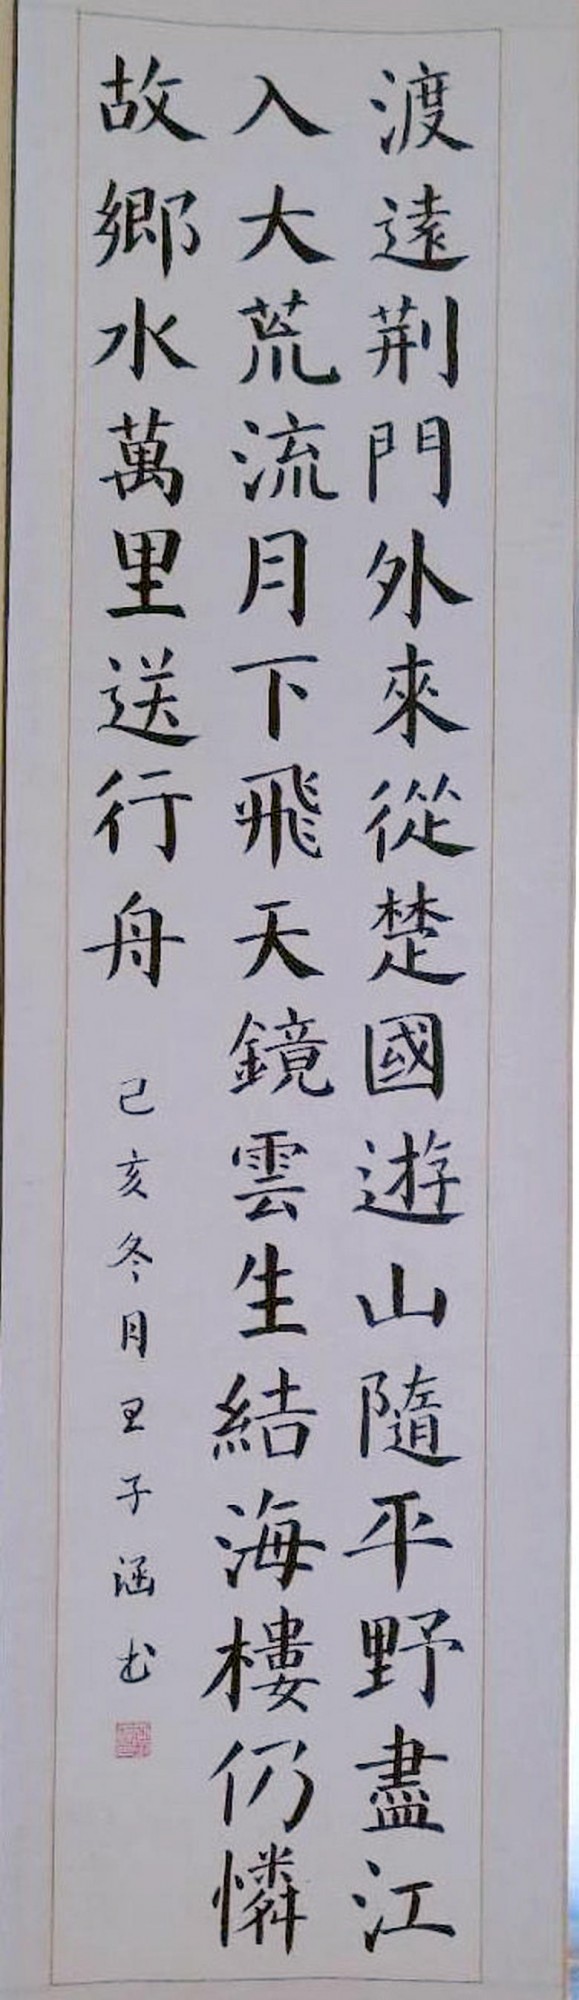 渡遠荆門外來從楚國遊山隨平野盡江
入大荒流月下飛天鏡雲生結海樓仍憐
故鄉水萬里送行舟
己亥冬月王子涵书